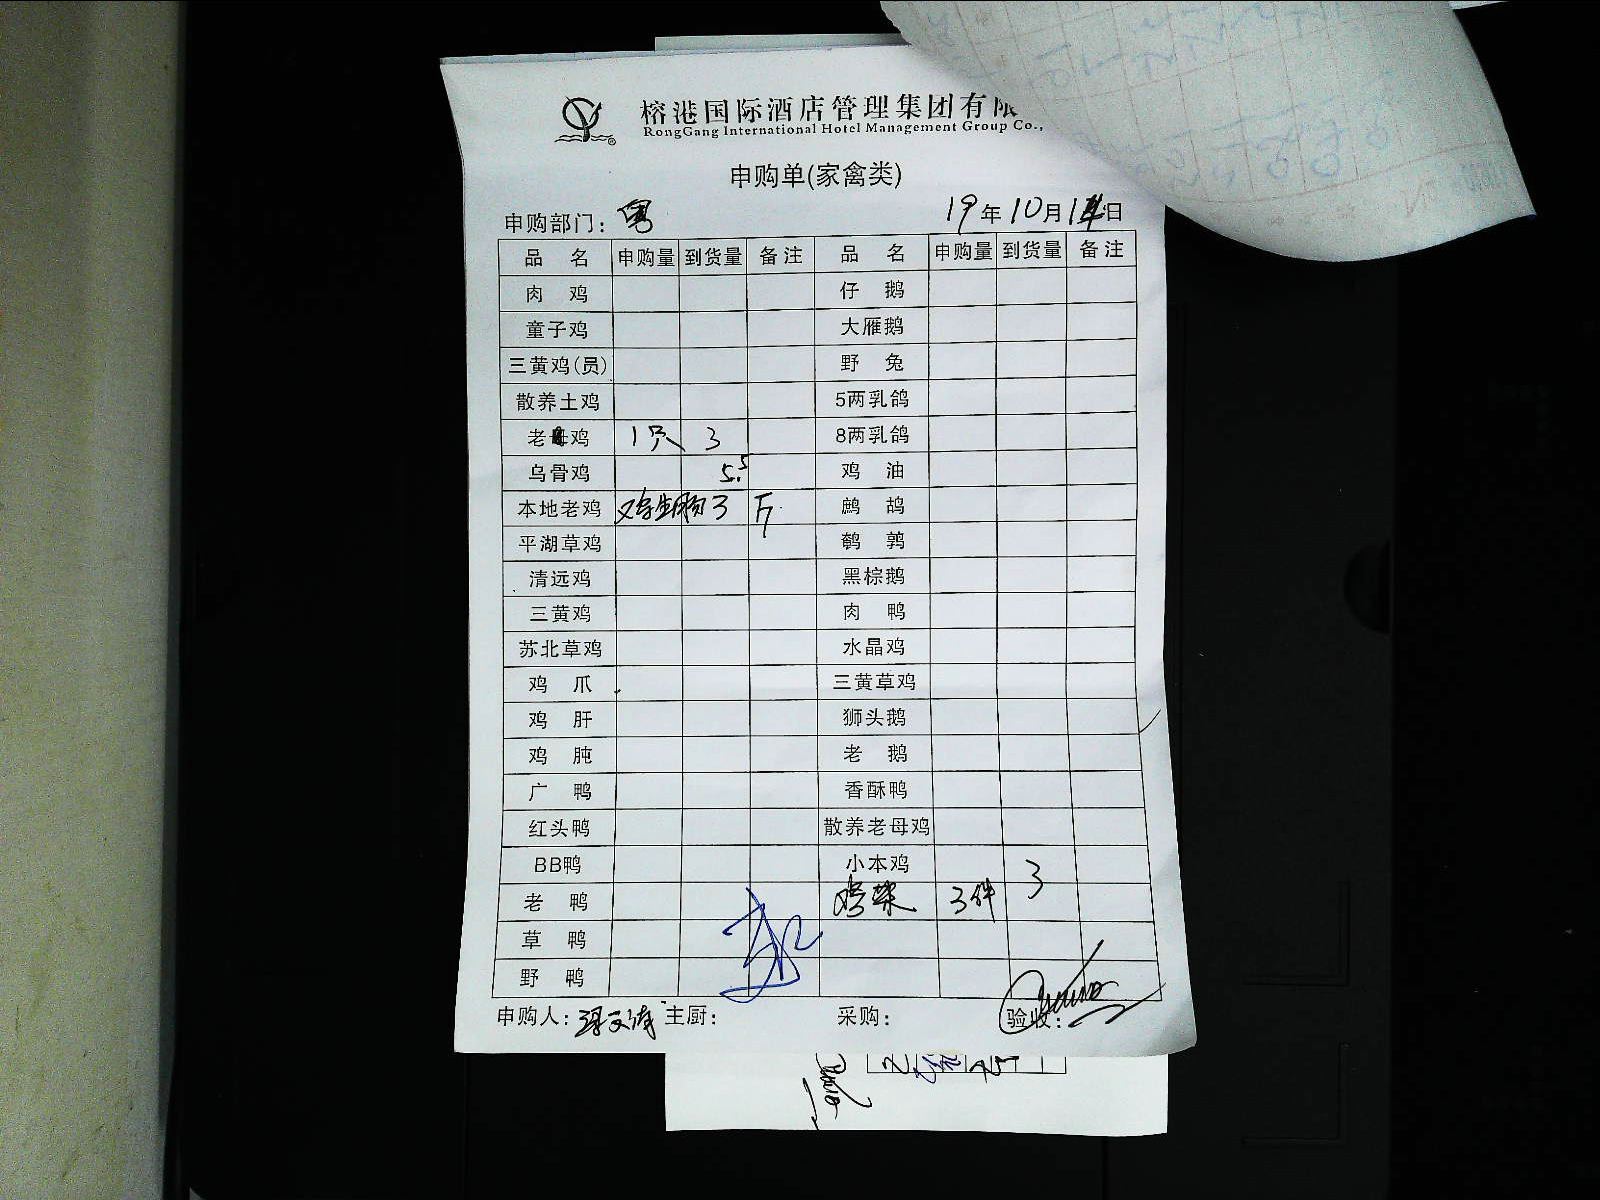 榕港国际酒店管理集团有限
RongGang International Hotel Management Group Co.,
申购单(家禽类)
申购部门: 粤 19年10月14日
品名 申购量 到货量 备注 品名 申购量 到货量 备注
肉鸡 仔鹅
童子鸡 大雁鹅
三黄鸡(员) 野兔
散养土鸡 5两乳鸽
老母鸡 1只 3 8两乳鸽
乌骨鸡 5.5 鸡油
本地老鸡 3斤 鹧鸪
平湖草鸡 鹌鹑
清远鸡 黑棕鹅
三黄鸡 肉鸭
苏北草鸡 水晶鸡
鸡爪 三黄草鸡
鸡肝 狮头鹅
鸡肫 老鹅
广鸭 香酥鸭
红头鸭 散养老母鸡
BB鸭 小本鸡
老鸭 3件 3
草鸭
野鸭
申购人: 主厨: 采购: 验收: